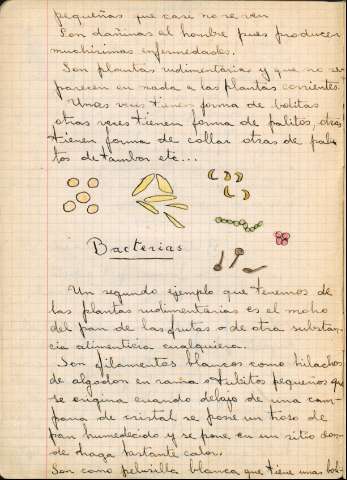 pequeñas que casi no se ven
Son dañinas al hombre pues producen
muchisimas enfermedades.
Son plantas rudimentarias y que no se
parecen en nada a las plantas corrientes.
Unas veces tienen forma de bolitas
otras veces tienen forma de palitos, otras
tienen forma de collar otras de pali-
tos de tambor etc...
Bacterias
Un segundo ejemplo que tenemos de
las plantas rudimentarias es el moho
del pan de las frutas o de otra substan-
cia alimenticia cualquiera.
Son filamentos blancos como hilachos
de algodon en rama o tubitos pequeños que
se origina cuando debajo de una cam-
pana de cristal se pone un trozo de
pan humedecido y se pone en un sitio don-
de haga bastante calor.
Son como pelusilla blanca que tiene unas